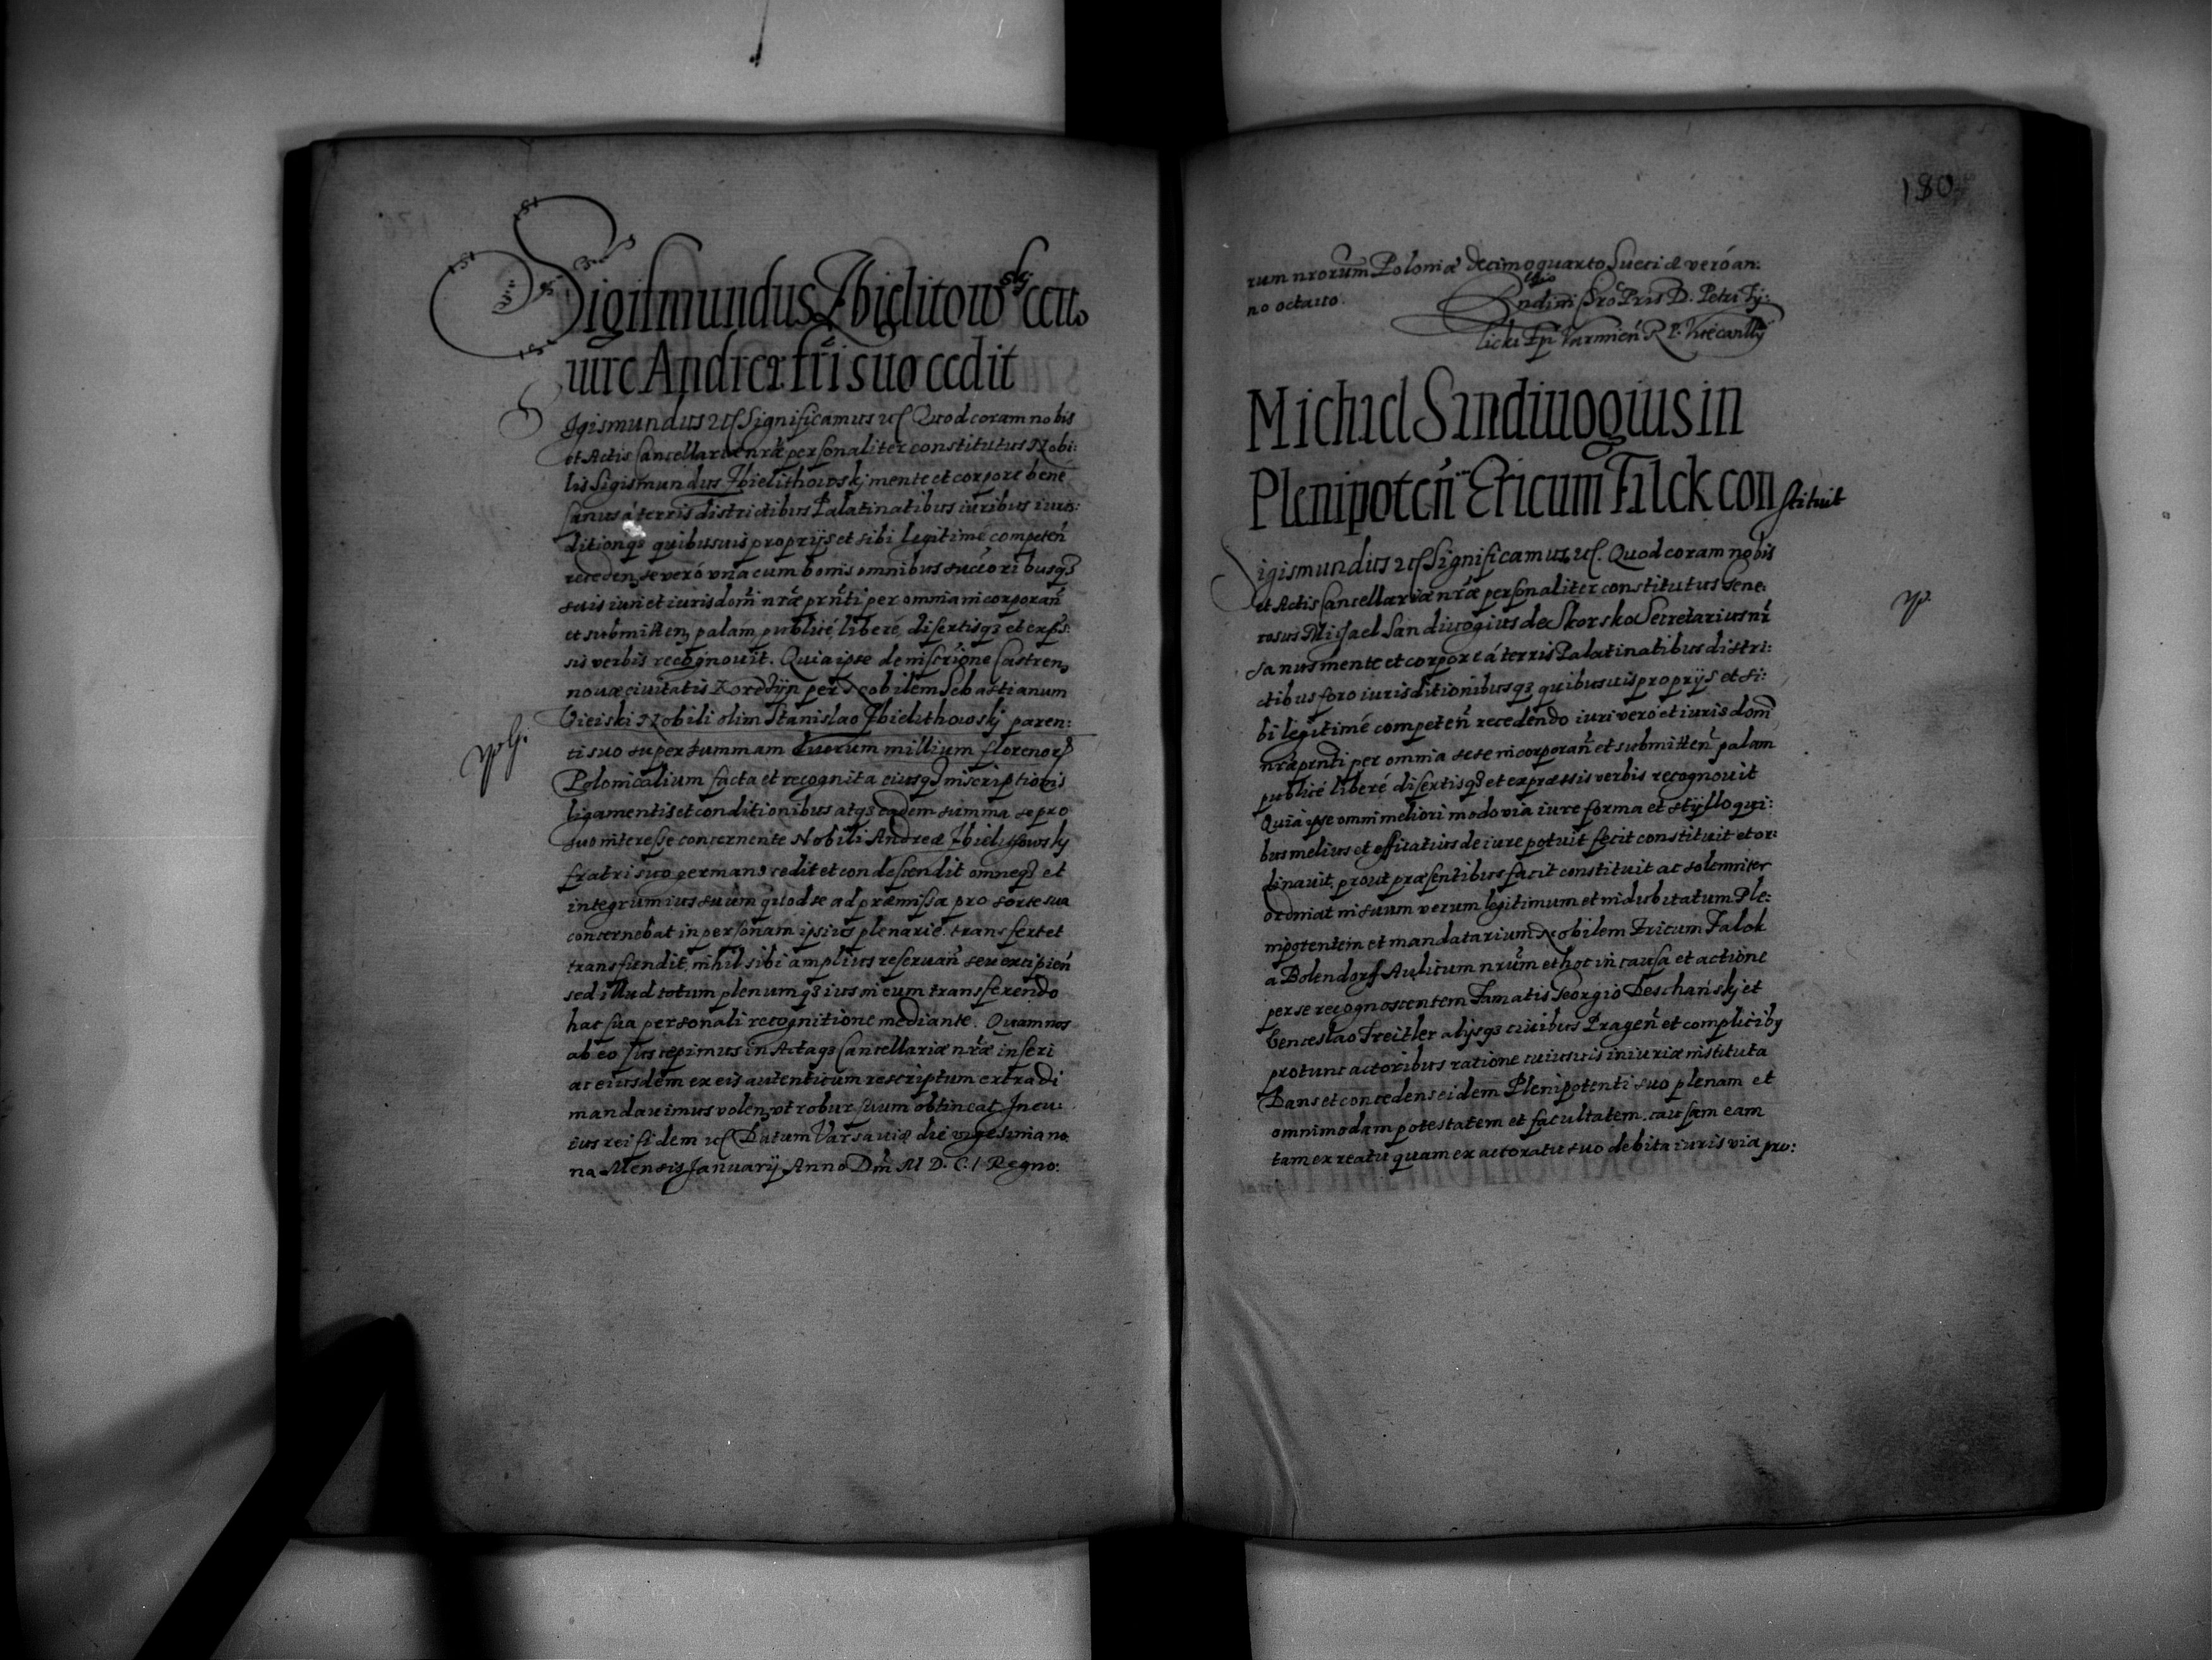 Sigismundus Zbielitowskj certo
iure Andreæ fri suo cedit
Sigismundus etc Significamus etc Quod coram nobis
et Actis Cancellariæ nræ personaliter constitutus Nobi:
lis Sigismundus Zbielithowskj mente et corpore bene
sanus á terris districtibus Palatinatibus iuribus iuris:
ditionqȝ quibusuis proprijs et sibi legitimé competen
receden, se veró vna cum bonis omnibus successoribusqȝ
suis iuri et iurisdom nræ prnti per omnia incorporan
et submitten, palam, publicé, liberé, disertisqȝ et expres
sis verbis recognouit. Quia ipse de inscriptione Castren,
nouæ ciuitatis per Nobilem Sebastianum
Nobili olim Stanislao Zbielithowskj paren:
ti suo super summam duorum millium florenorum
Polonicalium facta et recognita eiusqȝ inscriptionis
ligamentis et conditionibus atqȝ eadem summa se pro
suo interesse concernente Nobili Andreæ Zbielithowskj
fratri suo germano cedit et condescendit omneqȝ et
integrum ius suum quod se ad præmissa pro sorte sua
concernebat in personam ipsius plenarie transfert et
transfundit, nihil sibi amplius reseruan seu excipien
sed illud totum plenumqȝ ius in eum transferendo
hac sua personali recognitione mediante. Quam nos
ab eo suscepimus in Actaqȝ Cancellariæ nræ inseri
ac eiusdem ex eis autenticum rescriptum extradi
mandauimus volen, vt robur suum obtineat. In cu:
ius rei fidem etc Datum Varsauiæ die vigesima no
na Mensis Januarij Anno Dni M D. C. I Regno:
180
rum nrorum Poloniæ decimo quarto Sueciæ veró an:
no octauo.
Rndimi Pris D. Petri Ty:
licki Epi Varmien R P. Vicecancellarij
Michael Sandiuogius in
Plenipoten Ericum Falck constituit
Sigismundus etc Significamus etc. Quod coram nobis
et Actis Cancellariæ nræ personaliter constitutus Gene:
rosus Michael Sandiuogius de Skorsko Secretarius nr
sanus mente et corpore á terris Palatinatibus distri:
ctibus foro iurisditionibusqȝ quibusuis proprijs et si:
bi legitimé competen recedendo iuri veró et iurisdom
nræ prnti per omnia sese incorporan et submitten palam
publicé liberé disertisqȝ et expræssis verbis recognouit
Quia ipse omni meliori modo via iure forma et stÿllo qui:
bus melius et efficatius de iure potuit fecit constituit et or:
dinauit, prout præsentibus facit constituit ac solemniter
ordinat in suum verum legitimum et indubitatum Ple:
nipotentem et mandatarium Nobilem Ericum Falck
a Bolendorf Aulicum nrum et hoc in causa et actione
per se recognoscentem Famatis Georgio Deschanskj et
Venceslao Treitler alijsqȝ ciuibus Pragen et complicibꝫ
pro tunc actoribus ratione cuiusuis iniuriæ instituta
Dans et concedens eidem Plenipotenti suo plenam et
omnimodam potestatem et facultatem causam eam
tam ex reatu quam ex actoratu suo debita iuris via pro: